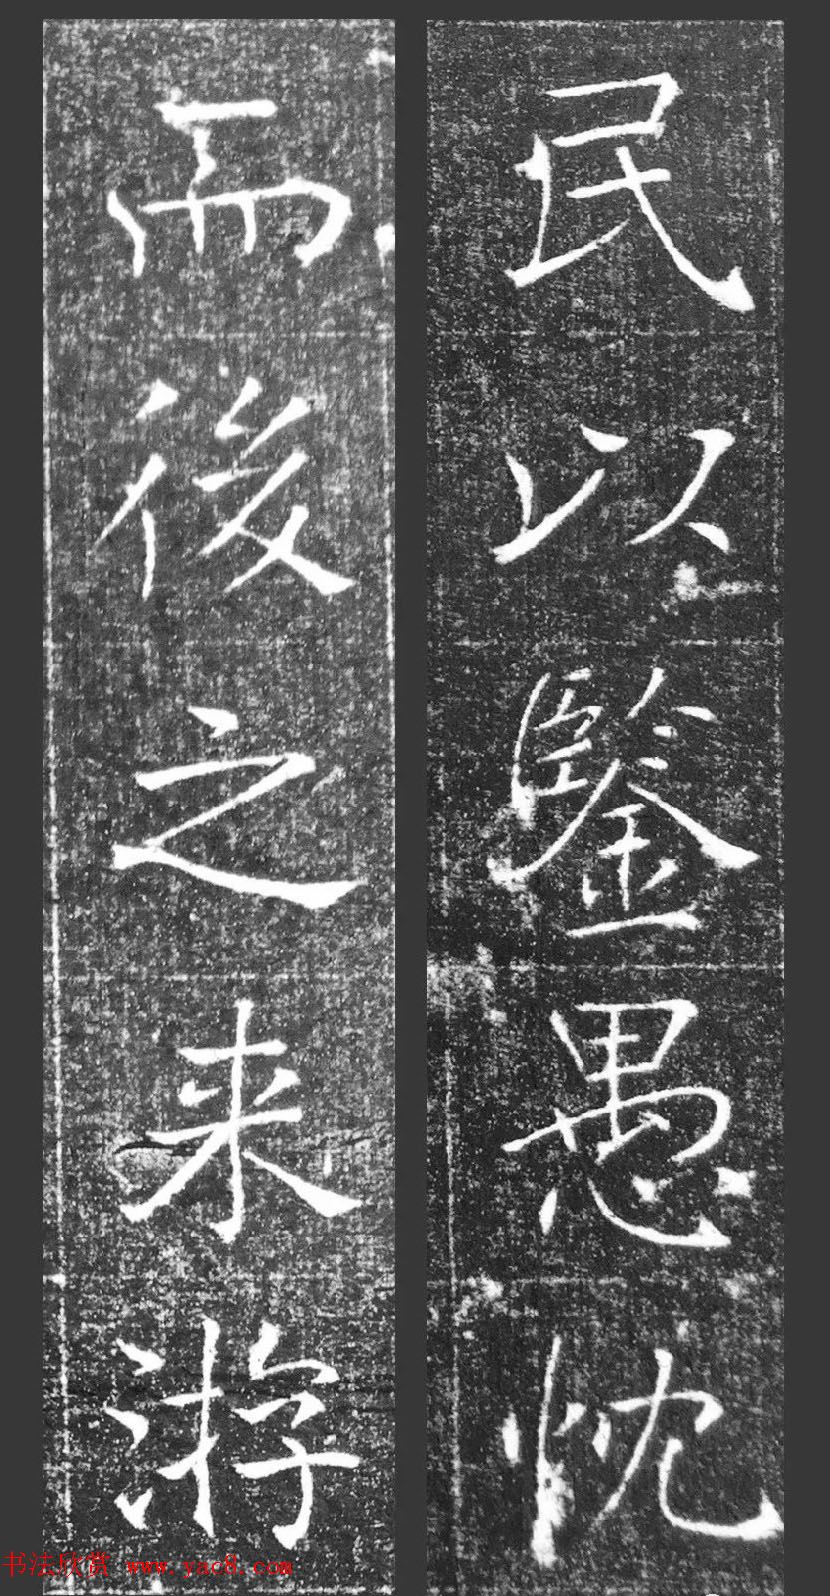 民以鑒愚忱
而後之来游
书法欣赏 www.yac8.com